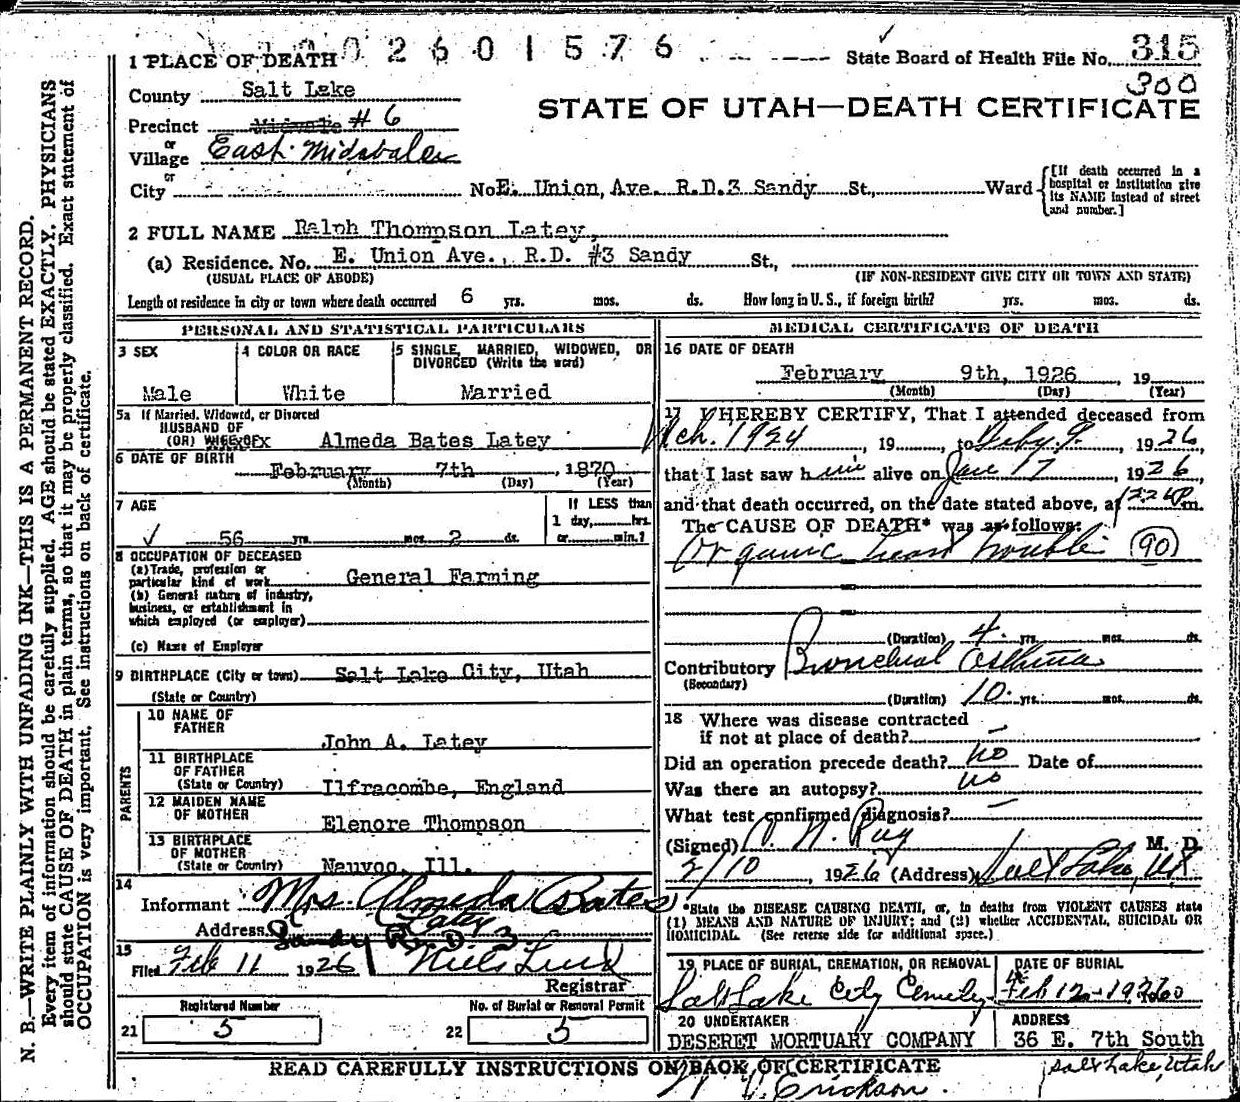 2 6 0 1 5 7 6
1 PLACE OF DEATH
State Board of Health File No. 315
300
County Salt Lake
STATE OF UTAH—DEATH CERTIFICATE
Precinct Midvale # 6
or
Village East Midvale
or
City
No. E. Union, Ave. R.D.3 Sandy St., Ward
[If death occurred in a hospital or institution give its NAME instead of street and number.]
2 FULL NAME Ralph Thompson Latey,
(a) Residence. No. E. Union Ave., R.D. #3 Sandy St.,
(USUAL PLACE OF ABODE) (IF NON-RESIDENT GIVE CITY OR TOWN AND STATE)
Length of residence in city or town where death occurred 6 yrs. mos. ds. How long in U. S., if foreign birth? yrs. mos. ds.
PERSONAL AND STATISTICAL PARTICULARS
3 SEX
Male
4 COLOR OR RACE
White
5 SINGLE, MARRIED, WIDOWED, OR
DIVORCED (Write the word)
Married
5a If Married, Widowed, or Divorced
HUSBAND OF
(OR) WIFE OF Almeda Bates Latey
6 DATE OF BIRTH
February 7th, 1870
(Month) (Day) (Year)
7 AGE
56 yrs. mos. 2 ds.
If LESS than
1 day, hrs.
or min.?
8 OCCUPATION OF DECEASED
(a) Trade, profession or
particular kind of work General Farming
(b) General nature of industry,
business, or establishment in
which employed (or employer)
(c) Name of Employer
9 BIRTHPLACE (City or town) Salt Lake City, Utah
(State or Country)
PARENTS
10 NAME OF
FATHER
John A. Latey
11 BIRTHPLACE
OF FATHER
(State or Country) Ilfracombe, England
12 MAIDEN NAME
OF MOTHER
Elenore Thompson
13 BIRTHPLACE
OF MOTHER
(State or Country) Nauvoo, Ill.
14
Informant Mrs Almeda Bates
Latey
Address Sandy R. D. 3.
15
Filed Feb 11 1926 Niels Lind
Registrar
Registered Number
21 5
No. of Burial or Removal Permit
22 5
MEDICAL CERTIFICATE OF DEATH
16 DATE OF DEATH
February 9th, 1926, 19
(Month) (Day) (Year)
17 I HEREBY CERTIFY, That I attended deceased from
Mch. 1924 , 19 , to Feby 9, 1926
that I last saw him alive on Jan 17, 1926,
and that death occurred, on the date stated above, at m.
The CAUSE OF DEATH* was as follows:
Organic heart trouble (90)
(Duration) 4 yrs. mos. ds.
Contributory Bronchial Asthma
(Secondary)
(Duration) 10 yrs. mos. ds.
18 Where was disease contracted
if not at place of death? —
Did an operation precede death? no Date of
Was there an autopsy? no
What test confirmed diagnosis? —
(Signed) Ray M. D.
2/10, 1926 (Address) Salt Lake, Ut
*State the DISEASE CAUSING DEATH, or, in deaths from VIOLENT CAUSES state
(1) MEANS AND NATURE OF INJURY; and (2) whether ACCIDENTAL, SUICIDAL OR
HOMICIDAL. (See reverse side for additional space.)
19 PLACE OF BURIAL, CREMATION, OR REMOVAL
Salt Lake City Cemetery
DATE OF BURIAL
Feb 12 - 1926
20 UNDERTAKER
DESERET MORTUARY COMPANY
ADDRESS
36 E. 7th South
Salt Lake, Utah
READ CAREFULLY INSTRUCTIONS ON BACK OF CERTIFICATE
Erickson.
N. B.—WRITE PLAINLY WITH UNFADING INK—THIS IS A PERMANENT RECORD.
Every item of information should be carefully supplied. AGE should be stated EXACTLY. PHYSICIANS
should state CAUSE OF DEATH in plain terms, so that it may be properly classified. Exact statement of
OCCUPATION is very important. See instructions on back of certificate.